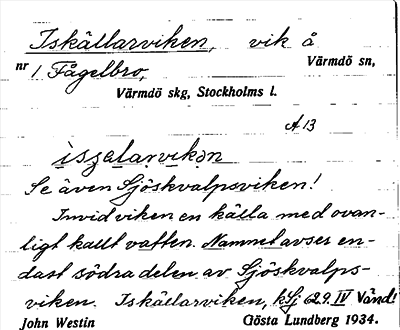 Iskällarviken, vik å
Värmdö sn,
nr 1 Fågelbro,
Värmdö skg, Stockholms l.
A 13
Se även Sjöskvalpsviken!
Invid viken en källa med ovan-
ligt kallt vatten. Namnet avses en-
dast södra delen av Sjöskvalps-
viken. Iskällarviken, Vänd!
John Westin Gösta Lundberg 1934.